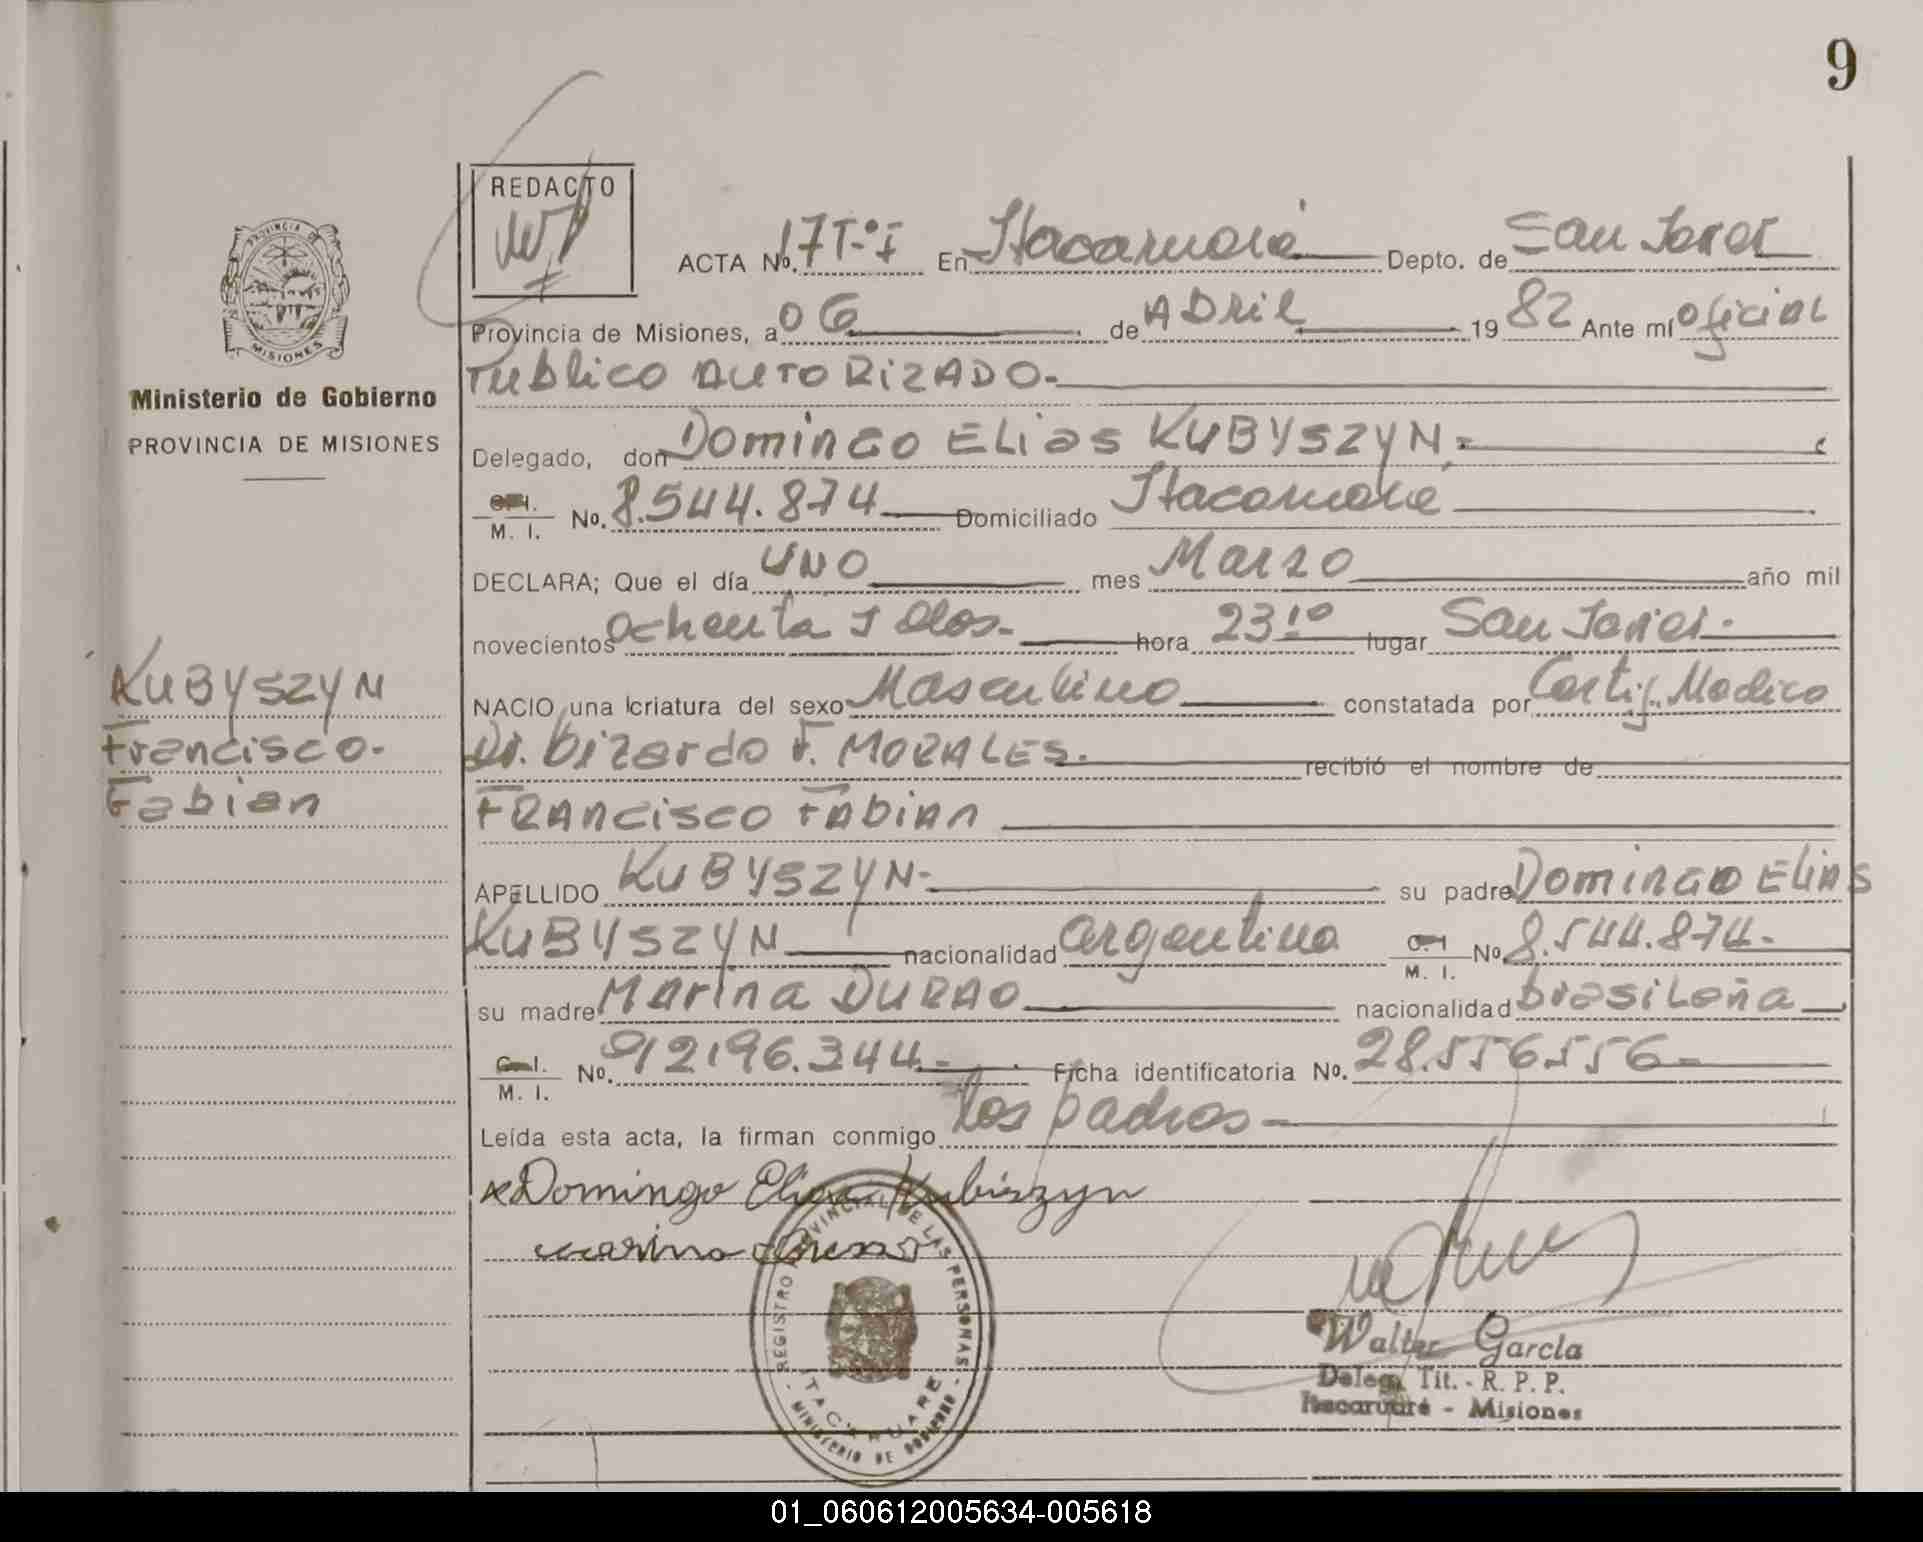 9
REDACTO
ACTA No. 17 T-º I En Itacaruaré Depto. de San Javier
Provincia de Misiones, a 06 de Abril 19 82 Ante mí oficial
Publico AUTORIZADO.-
Ministerio de Gobierno
PROVINCIA DE MISIONES
PROVINCIA DE
MISIONES
Delegado, don Domingo Elias KUBYSZYN.-
C. I.
M. I. No. 8.544.874 Domiciliado Itacaruaré
DECLARA; Que el día UNO mes Marzo año mil
novecientos ochenta y dos.- hora 23:10 lugar San Javier.-
NACIO una criatura del sexo Masculino constatada por Certif. Medico
Dr. Dizardo F. MORALES.- recibió el nombre de
FRANCISCO FABIAN
KUBYSZYN
Francisco-
Fabian
APELLIDO KUBYSZYN- su padre Domingo Elias
KUBYSZYN nacionalidad argentina C. I.
M. I. No. 8.544.874.-
su madre Marina DURAO nacionalidad brasileña
C. I.
M. I. No. 92196.344.- Ficha identificatoria No. 28.556556-
Leída esta acta, la firman conmigo los padres-
Domingo Elias Kubiszyn
REGISTRO PROVINCIAL DE LAS PERSONAS
ITACARUARE
MINISTERIO DE GOBIERNO
Walter García
Deleg. Tit. - R. P. P.
Itacaruaré - Misiones
01_060612005634-005618